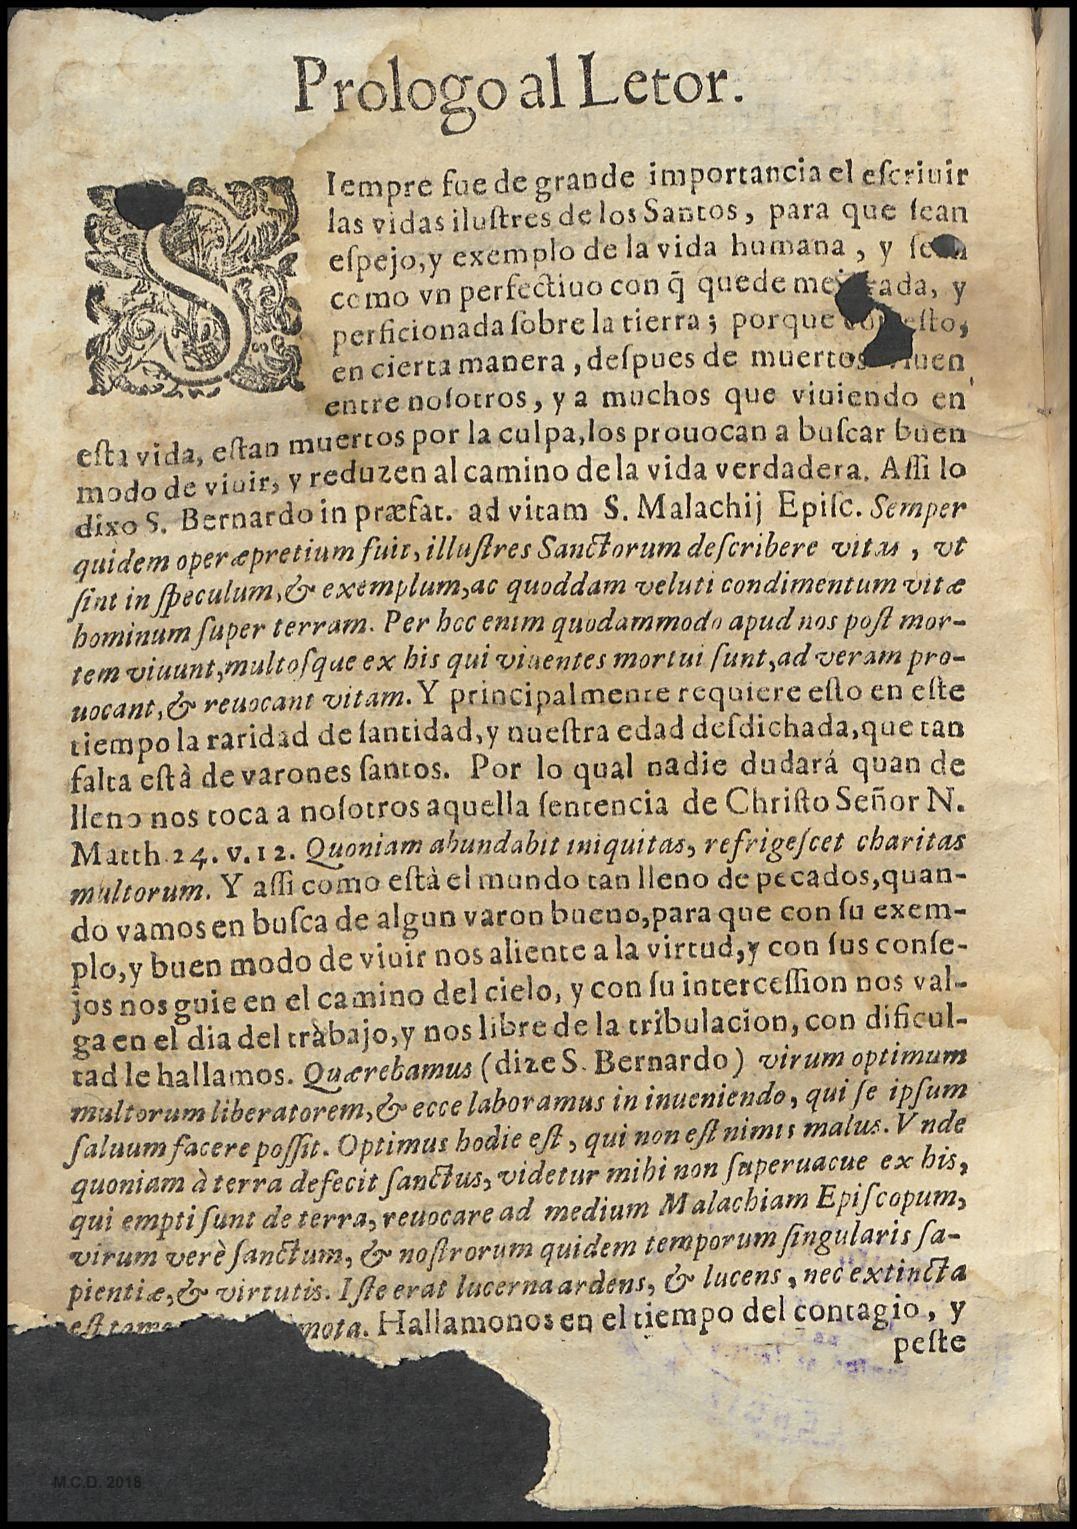 Prologo al Letor.
SIempre fue de grande importancia el eſcriuir
las vidas iluſtres de los Santos, para que ſean
eſpejo, y exemplo de la vida humana, y
como vn perfectiuo con q̃ quede y
perficionada ſobre la tierra; porque
en cierta manera, deſpues de muertos
entre noſotros, y a muchos que viuiendo en
eſta vida, eſtan muertos por la culpa, los prouocan a buſcar buen
modo de viuir, y reduzen al camino de la vida verdadera. Aſſi lo
dixo S. Bernardo in præfat. ad vitam S. Malachij Epiſc. Semper
quidem operæpretium fuit, illuſtres Sanctorum deſcribere vitas, vt
ſint in ſpeculum, & exemplum, ac quoddam veluti condimentum vitæ
hominum ſuper terram. Per hoc enim quodammodo apud nos poſt mor-
tem viuunt, multoſque ex his qui viuentes mortui ſunt, ad veram pro-
uocant, & reuocant vitam. Y principalmente requiere eſto en eſte
tiempo la raridad de ſantidad, y nueſtra edad deſdichada, que tan
falta eſtà de varones ſantos. Por lo qual nadie dudará quan de
lleno nos toca a noſotros aquella ſentencia de Chriſto Señor N.
Matth 24. v. 12. Quoniam abundabit iniquitas, refrigeſcet charitas
multorum. Y aſſi como eſtà el mundo tan lleno de pecados, quan-
do vamos en buſca de algun varon bueno, para que con ſu exem-
plo, y buen modo de viuir nos aliente a la virtud, y con ſus conſe-
jos nos guie en el camino del cielo, y con ſu interceſſion nos val-
ga en el dia del tràbajo, y nos libre de la tribulacion, con dificul-
tad le hallamos. Quærebamus (dize S. Bernardo) virum optimum
multorum liberatorem, & ecce laboramus in inueniendo, qui ſe ipſum
ſaluum facere poſſit. Optimus hodie eſt, qui non eſt nimis malus. Vnde
quoniam à terra defecit ſanctus, videtur mihi non ſuperuacue ex his,
qui empti ſunt de terra, reuocare ad medium Malachiam Epiſcopum,
virum verè ſanctum, & noſtrorum quidem temporum ſingularis ſa-
pientiæ, & virtutis. Iſte erat lucerna ardens, & lucens, nec extincta
eſt mota. Hallamonos en el tiempo del contagio, y
peſte
M.C.D. 2018